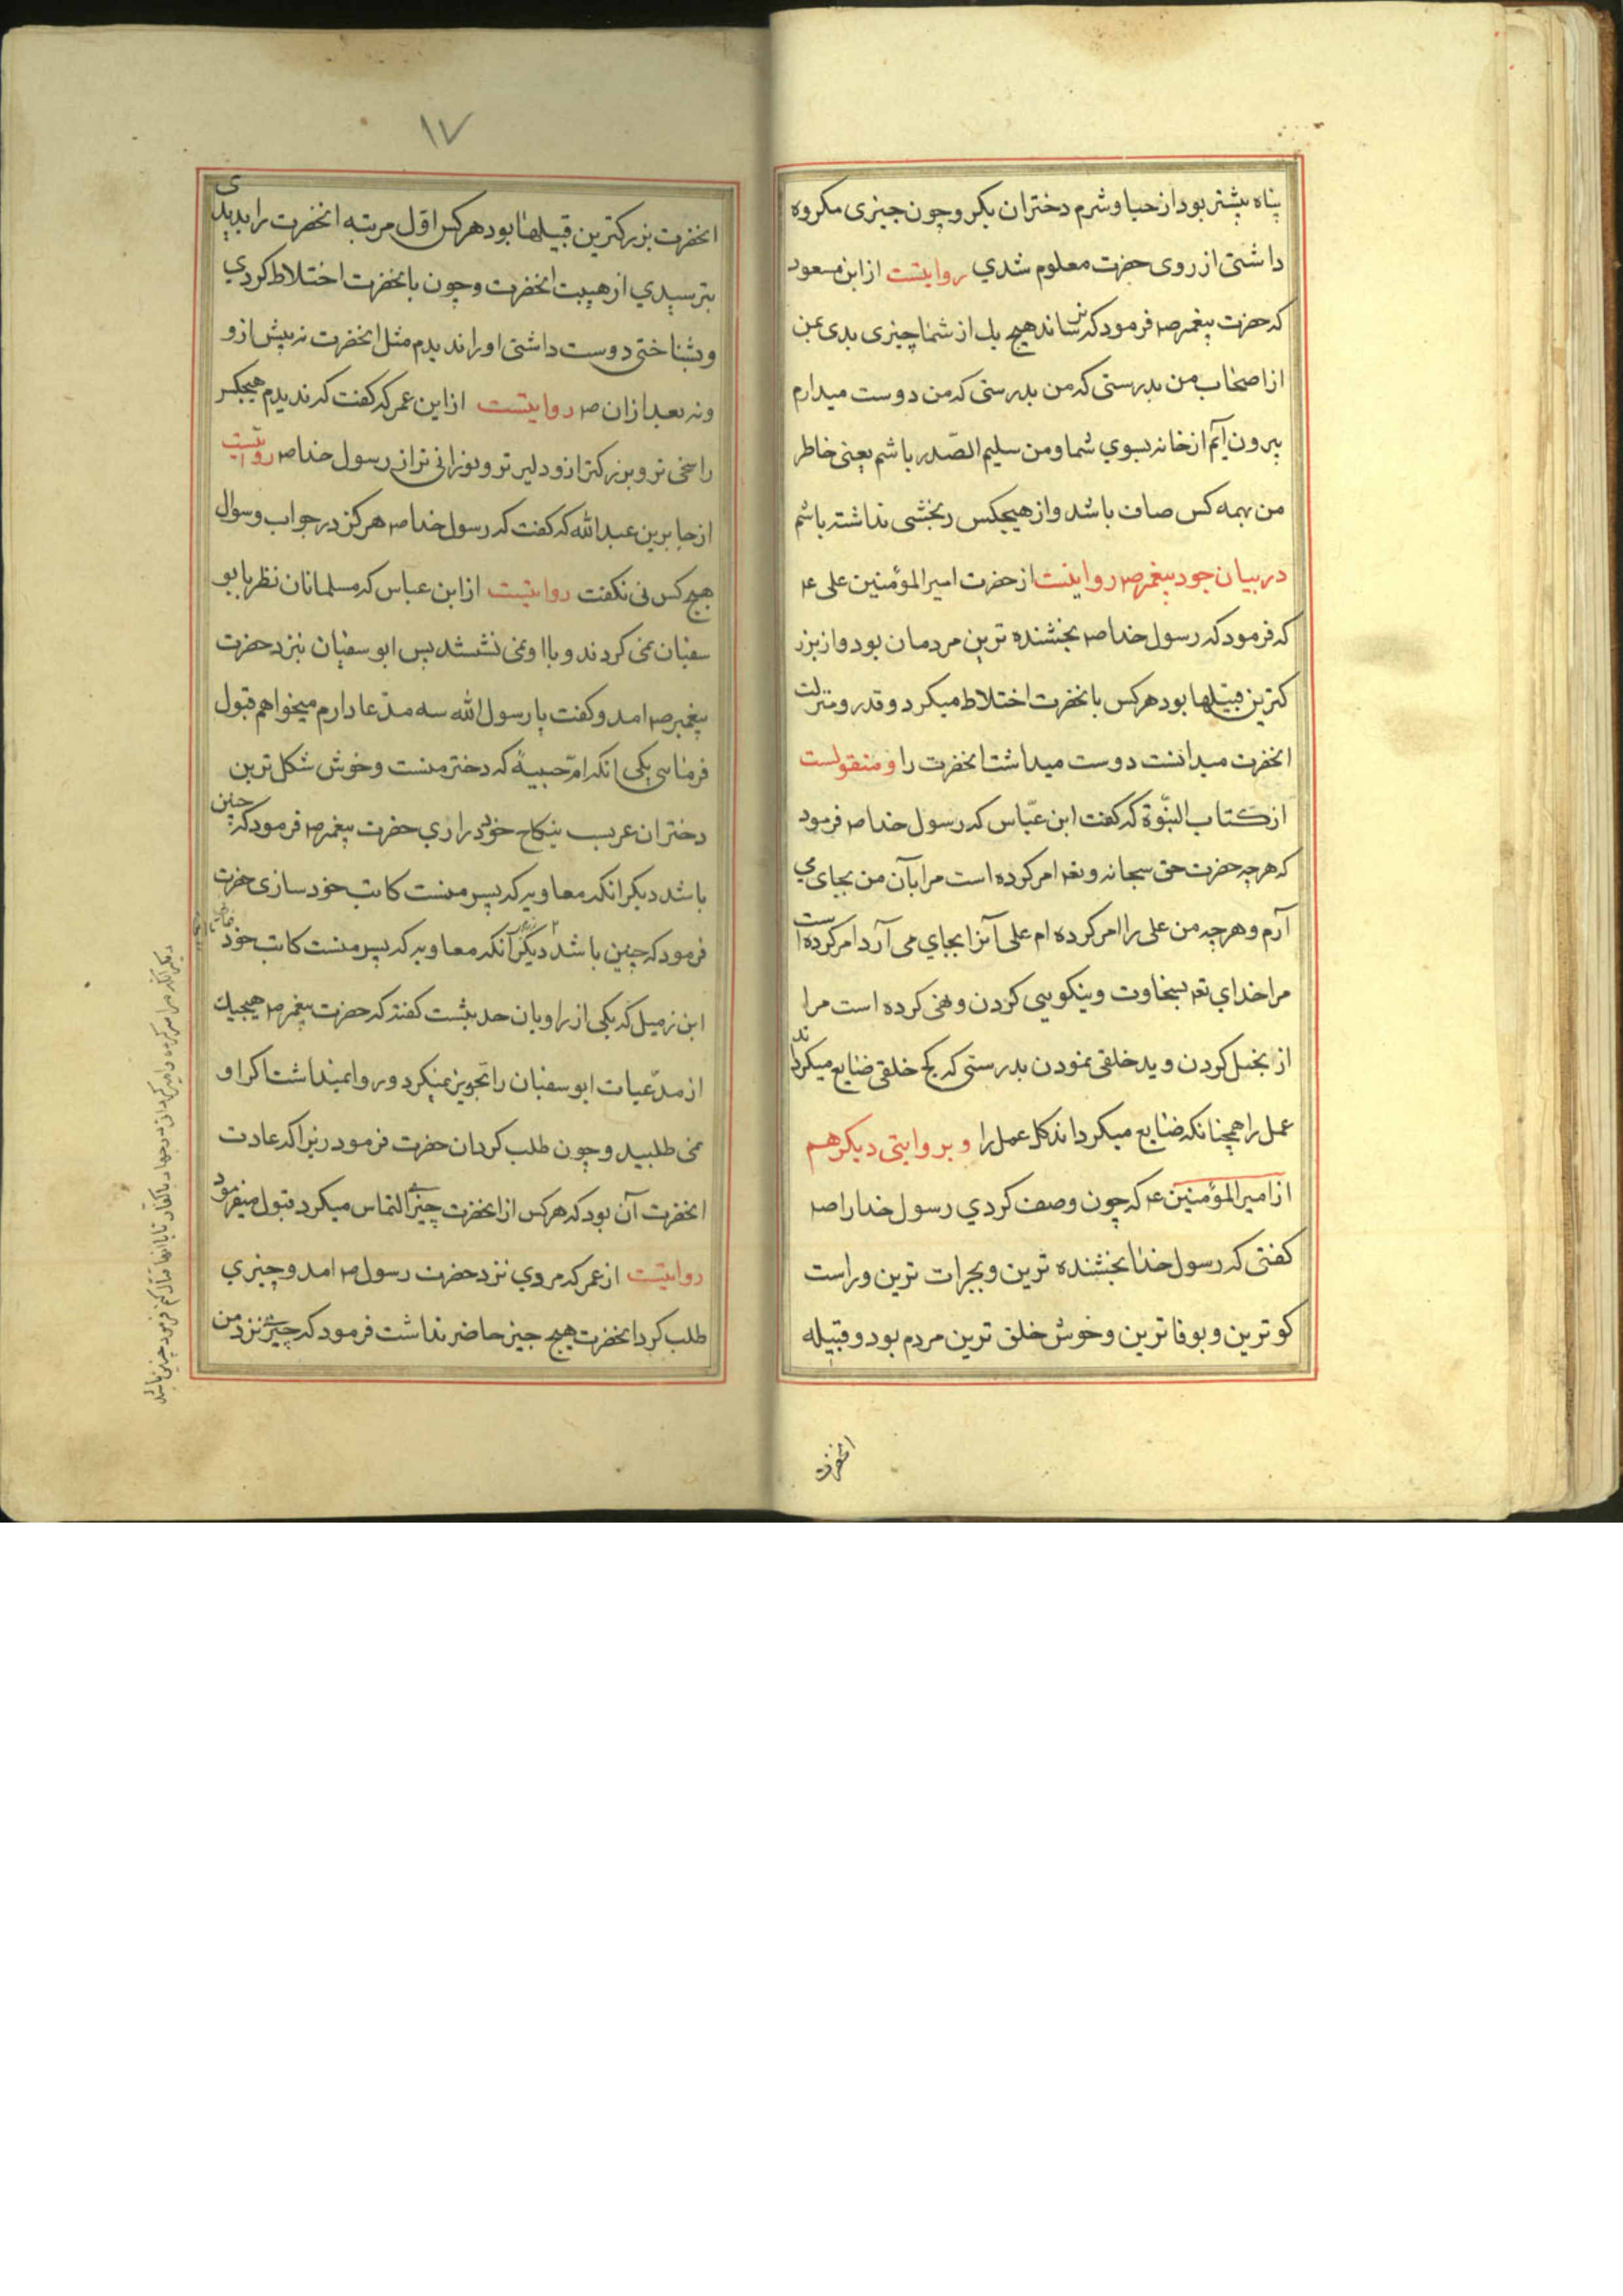 پناه بیشتر بود از حیا و شرم دختران بکر و چون چیزی مکروه
داشتی از روی حضرت معلوم شدی روایتست از ابن مسعود
که حضرت پیغمبر ص فرمود که نرساند هیچ یک از شما چیزی بدی بمن
از اصحاب من بدرستی که من بدرستی که من دوست میدارم
بیرون آیم از خانه بسوی شما و من سلیم الصّدر باشم یعنی خاطر
من بهمه کس صاف باشد و از هیچکس رنجشی نداشته باشم
در بیان جود پیغمبر ص روایتست از حضرت امیرالمؤمنین علی ع
که فرمود که رسول خدا ص بخشنده ترین مردمان بود و از بزر
کترین قبیلها بود هر کس بانحضرت اختلاط میکرد و قدر و منزلت
انحضرت میدانست دوست میداشت انحضرت را و منقولست
از کتاب النبّوة که کفت ابن عبّاس که رسول خدا ص فرمود
که هر چه حضرت حق سبحانه و تعه امر کرده است مرا بآن من بجای می
آرم و هر چه من علی را امر کرده ام علی آنرا بجای می آرد امر کرده است
مرا خدای تعه بسخاوت و نیکویی کردن و نهی کرده است مرا
از بخیل کردن و بد خلقی نمودن بدرستی که کج خلقی ضایع میکرداند
عمل را همچنانکه ضایع میکرداند کل عمل را و بروایتی دیکر هم
از امیرالمؤمنین ع که چون وصف کردی رسول خدا را ص
کفتی که رسول خدا بخشنده ترین و بجرات ترین و راست
کو ترین و بوفا ترین و خوش خلق ترین مردم بود و قبیله
انحضرت
۱۷
انحضرت بزرکترین قبیلها بود هر کس اوّل مرتبه انحضرت را بدیدی
بترسیدی از هیبت انحضرت و چون بانحضرت اختلاط کردی
و بشناختی دوست داشتی او را ندیدم مثل انحضرت نه پیش ازو
و نه بعد ازان ص روایتست از ابن عمر که کفت که ندیدم هیچکس
را سخی تر و بزرکتر ازو دلیر تر و نورانی تر از رسول خدا ص روایتست
از جابر بن عبدالله که کفت که رسول خدا ص هرکز در جواب و سوال
هیچ کس نی نکفت روایتست از ابن عباس که مسلمانان نظر بابو
سفیان نمی کردند و باا و نمی نشستند پس ابو سفیان نزد حضرت
پیغمبر ص امد و کفت یا رسول الله سه مدّعا دارم میخواهم قبول
فرمائی یکی انکه امّ حبیبه که دختر منست و خوش شکل ترین
دختران عربست بنکاح خود در ازی حضرت پیغمبر ص فرمود که چنین
باشد دیکر انکه معاویه که پسر منست کاتب خود سازی حضرت
فرمود که چنین باشد دیکر آنکه معاویه که پسر منست کاتب خود
ابن زمیل که یکی از راویان حدیثست کفته که حضرت پیغمبر ص هیچیک
از مدّعیات ابو سفیان را تجویز نمیکرد و روا نمیداشت اکر او
نمی طلبید و چون طلب کرد ان حضرت فرمود زیرا که عادت
انحضرت آن بود که هر کس از انحضرت چیزی التماس میکرد قبول میفرمود
روایتست از عمر که مردی نزد حضرت رسول ص امد و چیزی
طلب کرد انحضرت هیچ چیز حاضر نداشت فرمود که چیزی نزد من